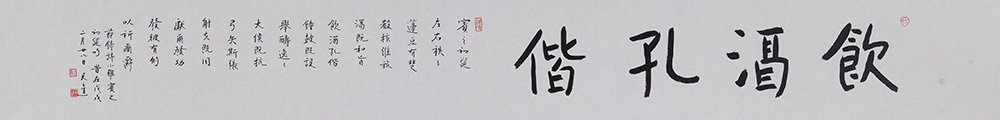 飲酒孔偕
賓之初筵
左右秩〻
籩豆有楚
殽核維旅
酒既和旨
飲酒孔偕
鐘鼓既設
舉醻逸〻
大侯既抗
弓矢斯張
射夫既同
獻爾發功
發彼有的
以祈爾爵